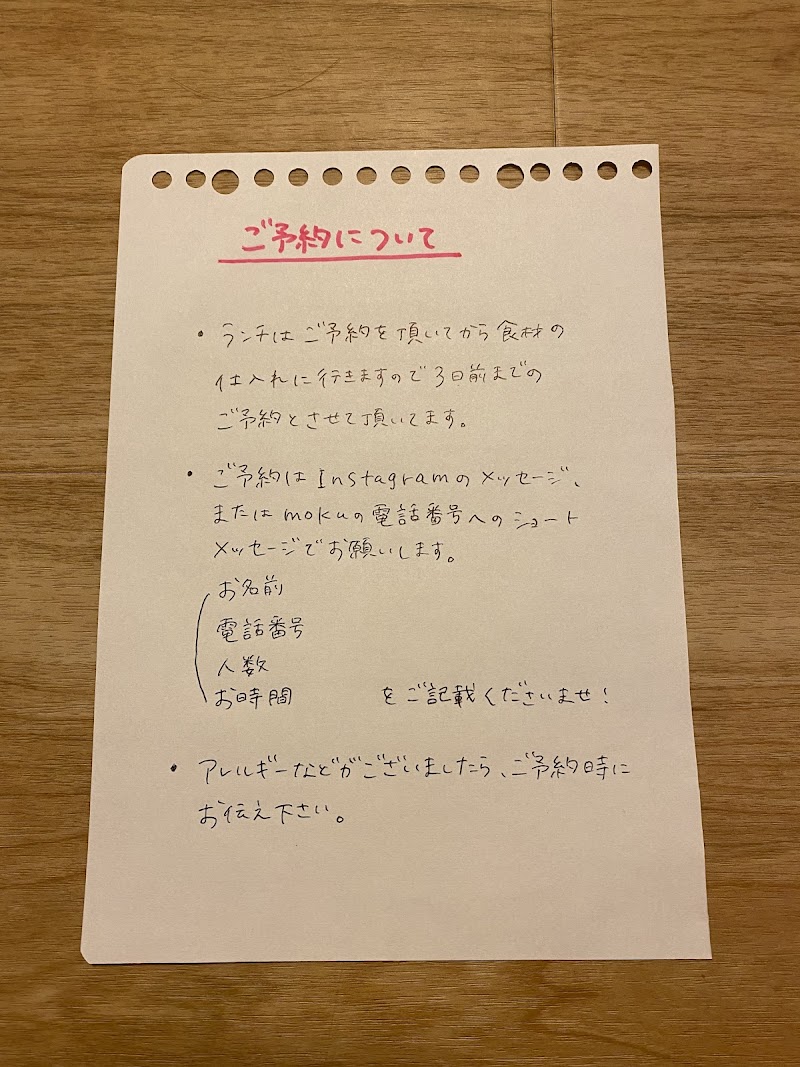 ご予約について
・ランチはご予約を頂いてから食材の
仕入れに行きますので3日前までの
ご予約とさせて頂いてます。
・ご予約はInstagramのメッセージ、
またはmokuの電話番号へのショート
メッセージでお願いします。
お名前
電話番号
人数
お時間 をご記載くださいませ!
・アレルギーなどがございましたら、ご予約時に
お伝え下さい。